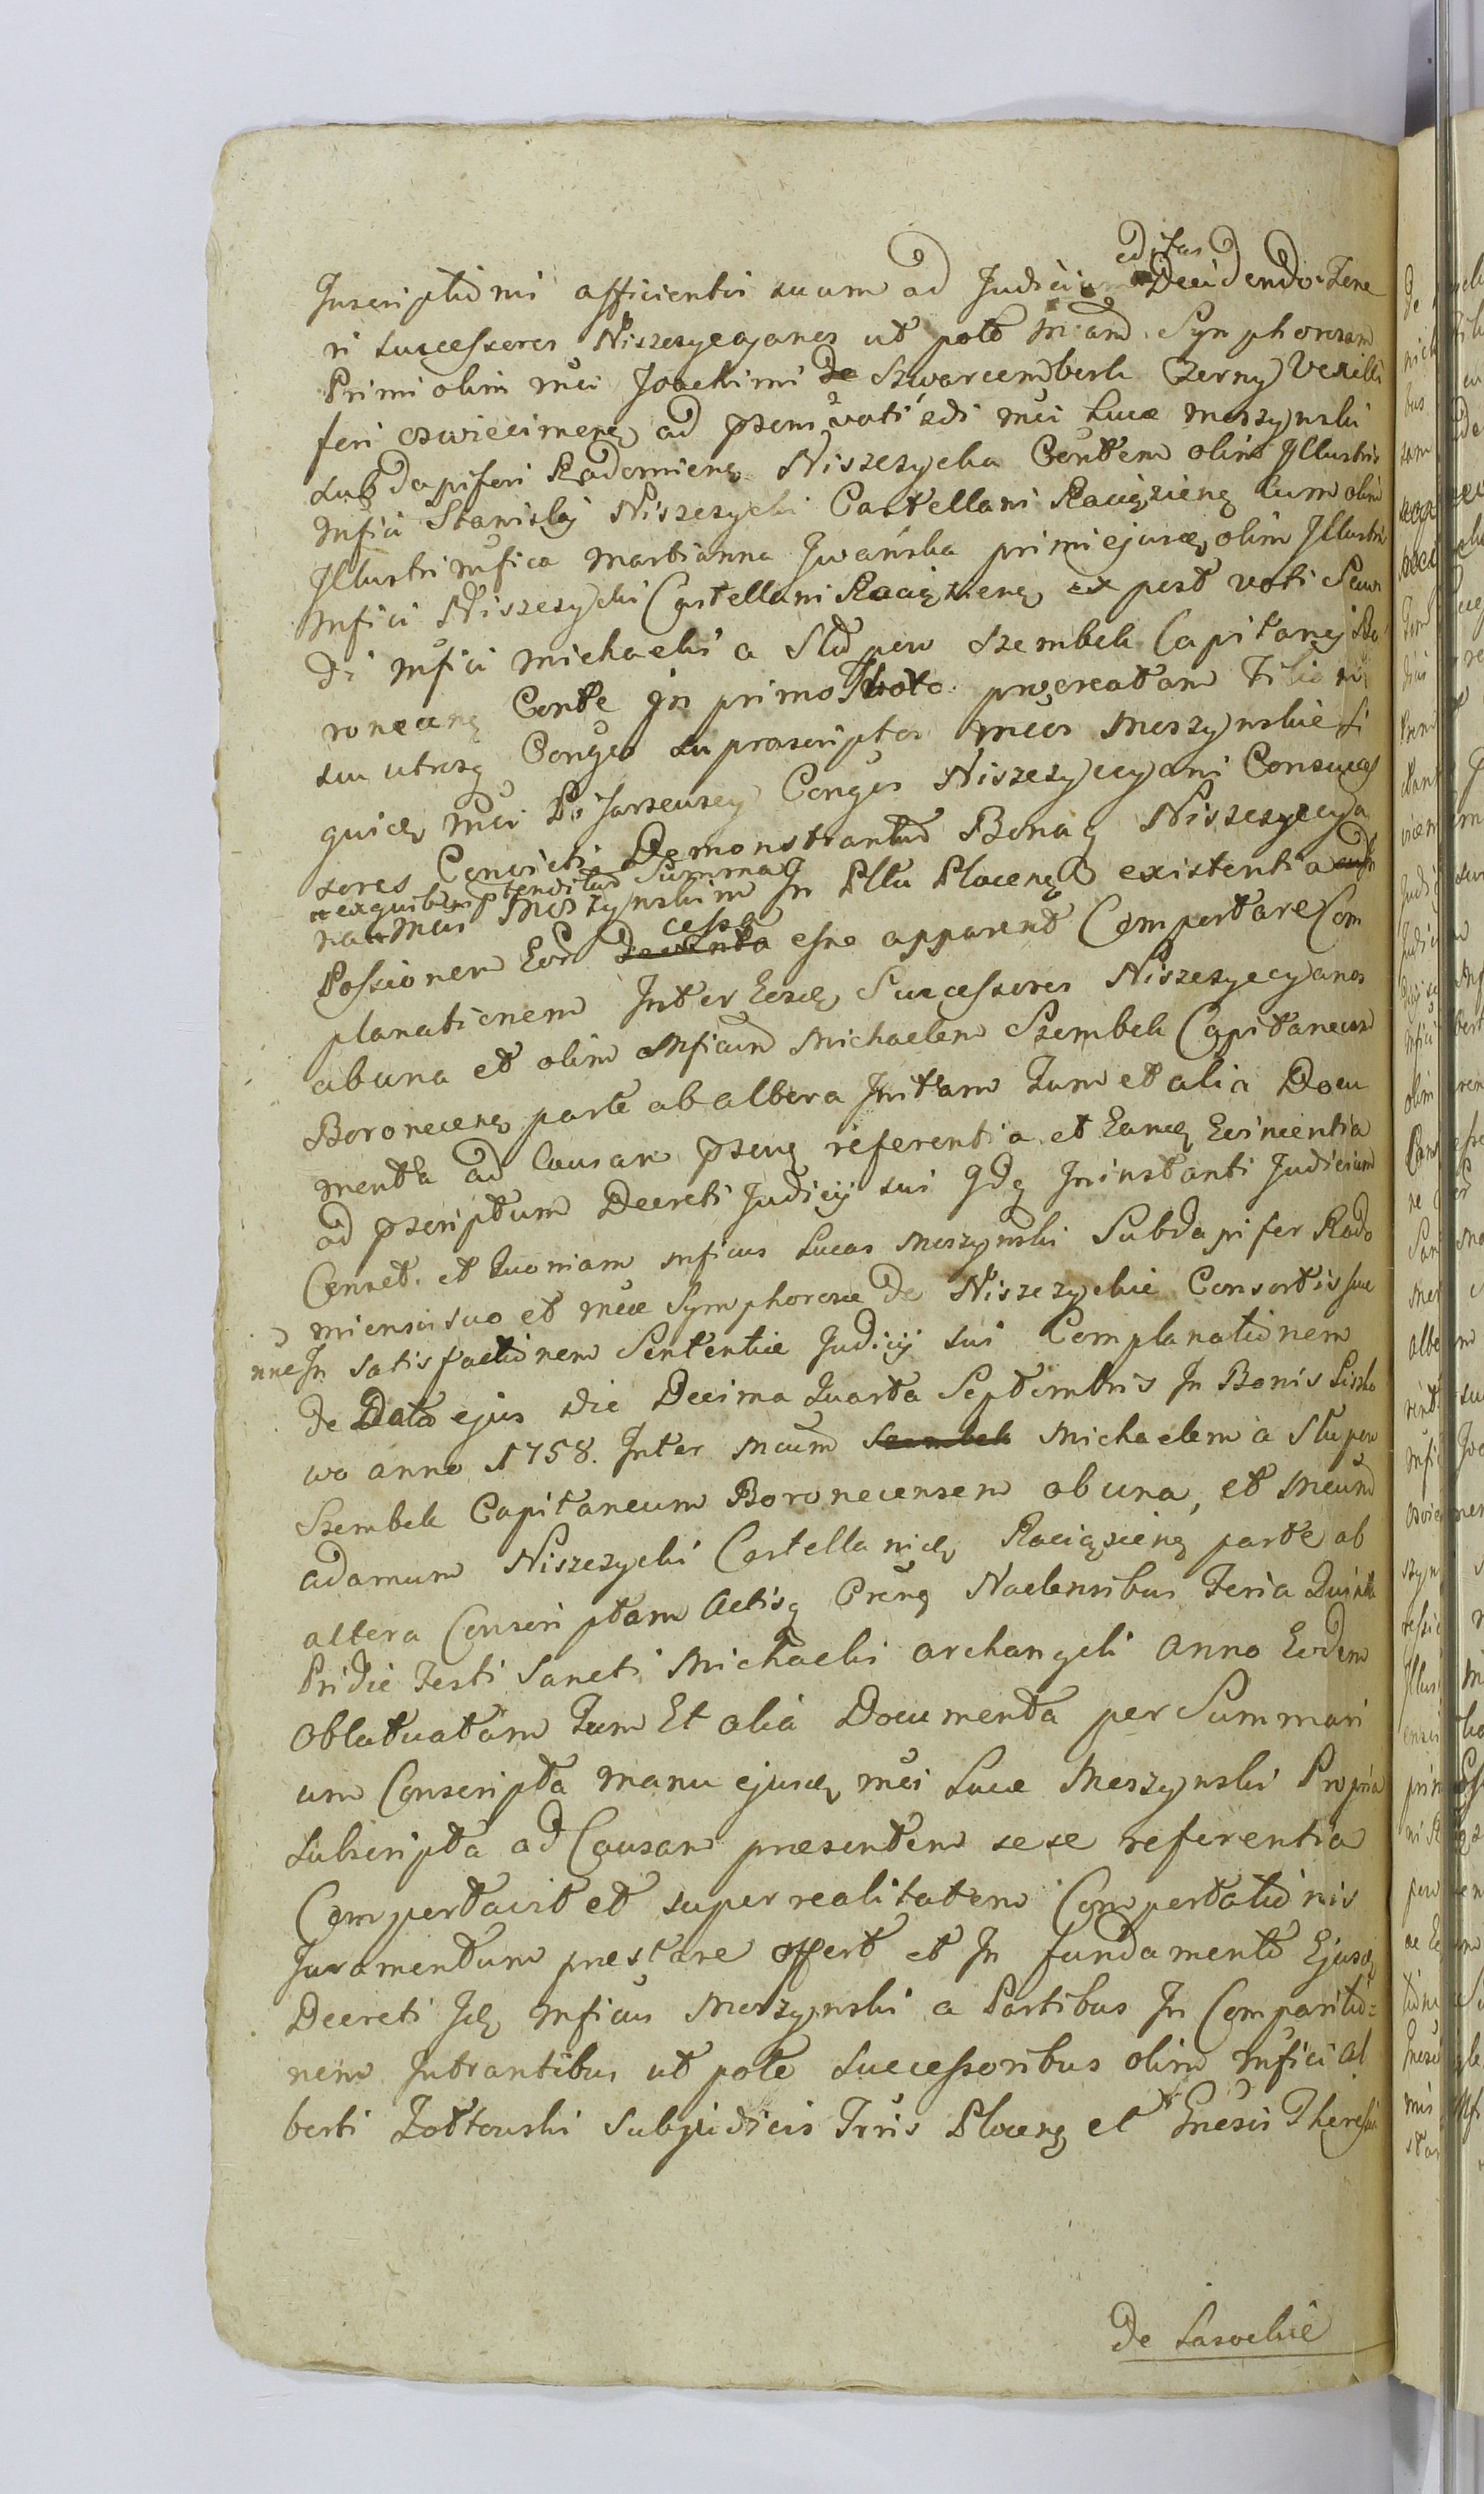 editas
Inscriptioni afficientis suum ad Judicium Decidendo. Tene
ri successores Niszczycyanos ut pote Mcam Symphorosam
Primi olim Mci Joachimi de Szwarcemberk Czerny Vexilli
feri Oswiecimens ad praesens voti 2di Mci Lucae Moszynski
Subdapiferi Radomiens Niszczycka Contem olim Illustris
Mfici Stanislaj Niszczycki Castellani Raciąziens cum olim
Illustri Mfica Martianna Iwańska primi ejusdem olim Illustris
Mfici Niszczycki Castellani Raciąziens ex post voti Secun
di Mfici Michaelis a Słupow Szembek Capitanei Bo
ronecens Conte in primo Thoro procreatam Filiam
suu utrosq Conges suprascriptos Mcos Moszynskie si
quidem Mci Po Jarseusey Conges Niszczycyani Consucces
sores Convicti Demonstrantur Bonaq Niszczycya
et ex quibus ptenditur Summa
na Mci Moszynskim In Pllu Plocens existentia
cessa
Possionem Eor Deventa esse apparent Comportare Com
planationem Inter Eosdem Successores Niszczycyanos
ab una et olim Mficum Michaelem Szembek Capitaneum
Boronecens parte ab altera Initam Tum et alia Docu
menta ad Causam psens referentia et Eamdem Evincentia
ad pscriptum Decreti Judicij sui qdq In instanti Judicium
Censet. et Quoniam Mficus Lucas Moszynski Subdapifer Rado
miensis suo et Mcae Symphorosae de Niszczyckie Consortis suae
nne In satisfactionem Sententiae Judicij sui Complanationem
de Data ejus die Decima Quarta Septembris In Bonis Lisko
wo anno 1758. Inter Mcum Szembek Michaelem a Słupow
Szembek Capitaneum Boronecensem ab una, et Mcum
Adamum Niszczycki Castellanidem Raciąziens parte ab
altera Conscriptam Actisq Crens Naclensibus Feria Quinta
Pridie Festi Sancti Michaelis Archangeli Anno Eodem
Oblatuatam Tum Et alia Documenta per Summari
um Conscripta manu ejusdem Mci Lucae Moszynski Propria
Subscripta ad Causam praesentem sese referentia
Comportavit et super realitatem Comportationis
Juramentum praestare offert et In fundamento Ejusdem
Decreti Idem Mficus Moszynski a Partibus In Comparitio=
nem Intrantibus ut pote Successoribus olim Mfici Al
berti Zołtowski Subjudicis Trris Plocens et Gnesis Theresiae
De Lasockie